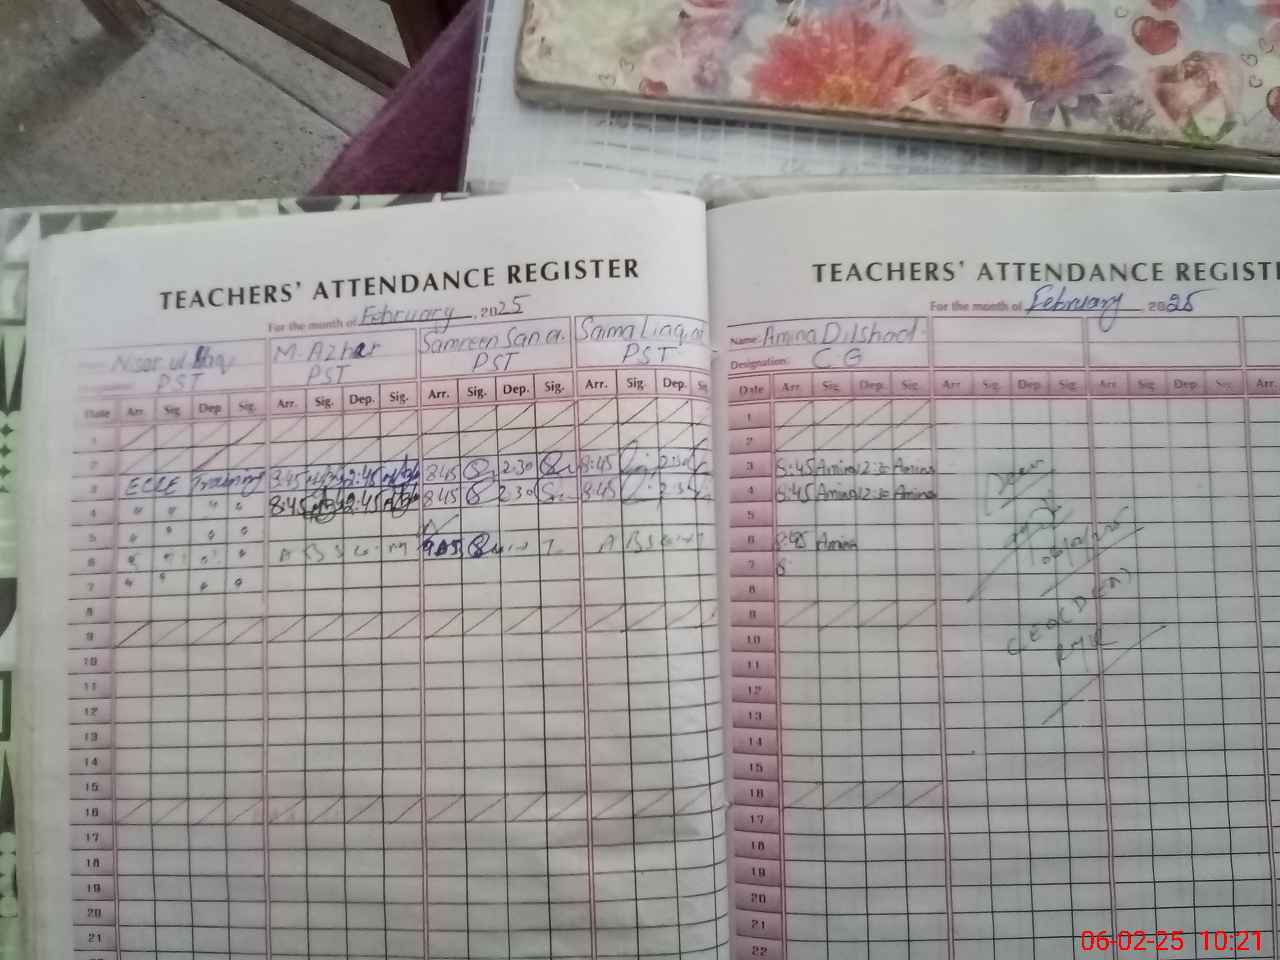 TEACHERS' ATTENDANCE REGISTER
For the month of February, 2025
Nisar ul Haq M. Azhar Samreen Sana. Saima Liaqat
PST PST PST PST
Date Arr. Sig. Dep. Sig. Arr. Sig. Dep. Sig. Arr. Sig. Dep. Sig. Arr. Sig. Dep. Sig.
1
2
3 ECCE Training 8:45 2:45 8:45 2:30 8:45 2:30
4 " " " " 8:45 2:45 8:45 2:30 8:45
5
6 A B S
7
8
9
10
11
12
13
14
15
16
17
18
19
20
21
TEACHERS' ATTENDANCE REGISTE
For the month of February, 2025
Name: Amina Dilshad.
Designation: C G
Date Arr. Sig. Dep. Sig. Arr. Sig. Dep. Sig. Arr. Sig. Dep. Sig. Arr.
1
2
3 8:45 Amina 12:30 Amina
4 8:45 Amina 12:30 Amina
5
6 8:45 Amina
7 8
8
9
10
11
12
13
14
15
16
17
18
19
20
21
22
CEO (DEA)
06-02-25 10:21